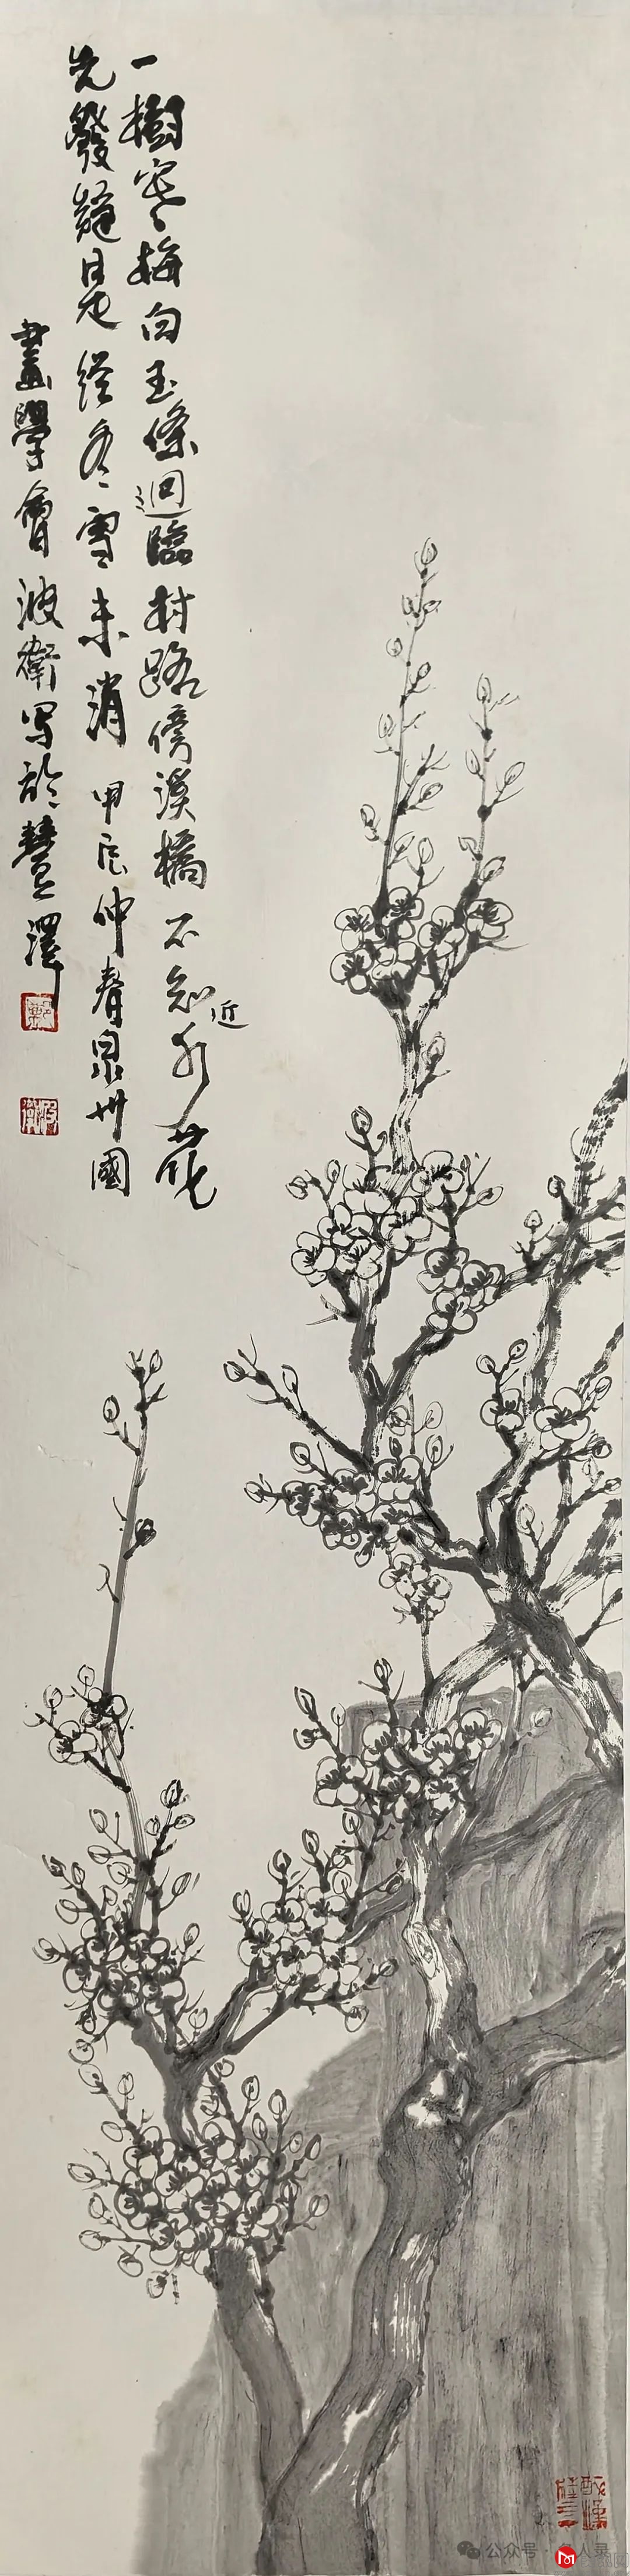 一樹寒梅白玉條迥臨村路傍溪橋不知近水花
先發疑是經冬雪未消 甲辰仲春泉州國
畫學會波衛写於慧澤
郭
波衛
公众号
人录